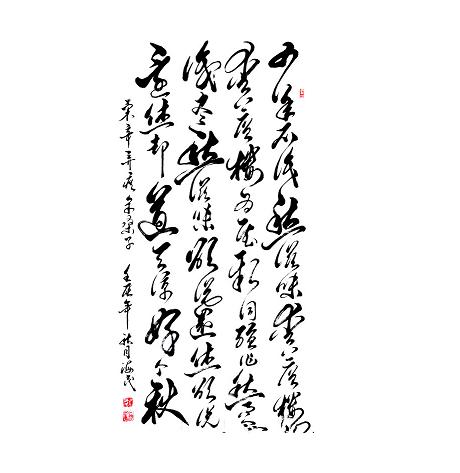 少年不识愁滋味爱上层楼
爱上层楼为赋新词强说愁而今
识尽愁滋味欲说还休欲说
还休却道天凉好个秋
宋辛弃疾采桑子 壬辰年秋月海民